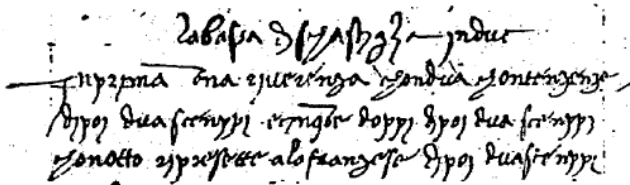 la bassa di chastiglia in due
in prima una riverenza chondua chontenenze
dipoi dua scenppi e cinque doppi dipoi dua scenppi
chon otto riprese alla franzese dipoi dua scienppi